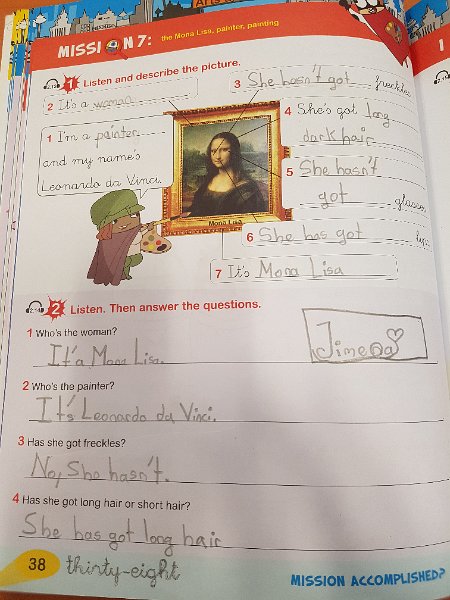 MISSION 7: the Mona Lisa, painter, painting
2.13 1 Listen and describe the picture.
2 It's a woman
3 She hasn't got freckles
1 I'm a painter
and my name's
Leonardo da Vinci.
4 She's got long
dark hair
5 She hasn't
got glasses
Mona Lisa
6 She has got
7 It's Mona Lisa
2.14 2 Listen. Then answer the questions.
1 Who's the woman?
It'a Mona Lisa.
Jimena
2 Who's the painter?
It's Leonardo da Vinci.
3 Has she got freckles?
No, She hasn't.
4 Has she got long hair or short hair?
She has got long hair
38 thirty-eight
MISSION ACCOMPLISHED?